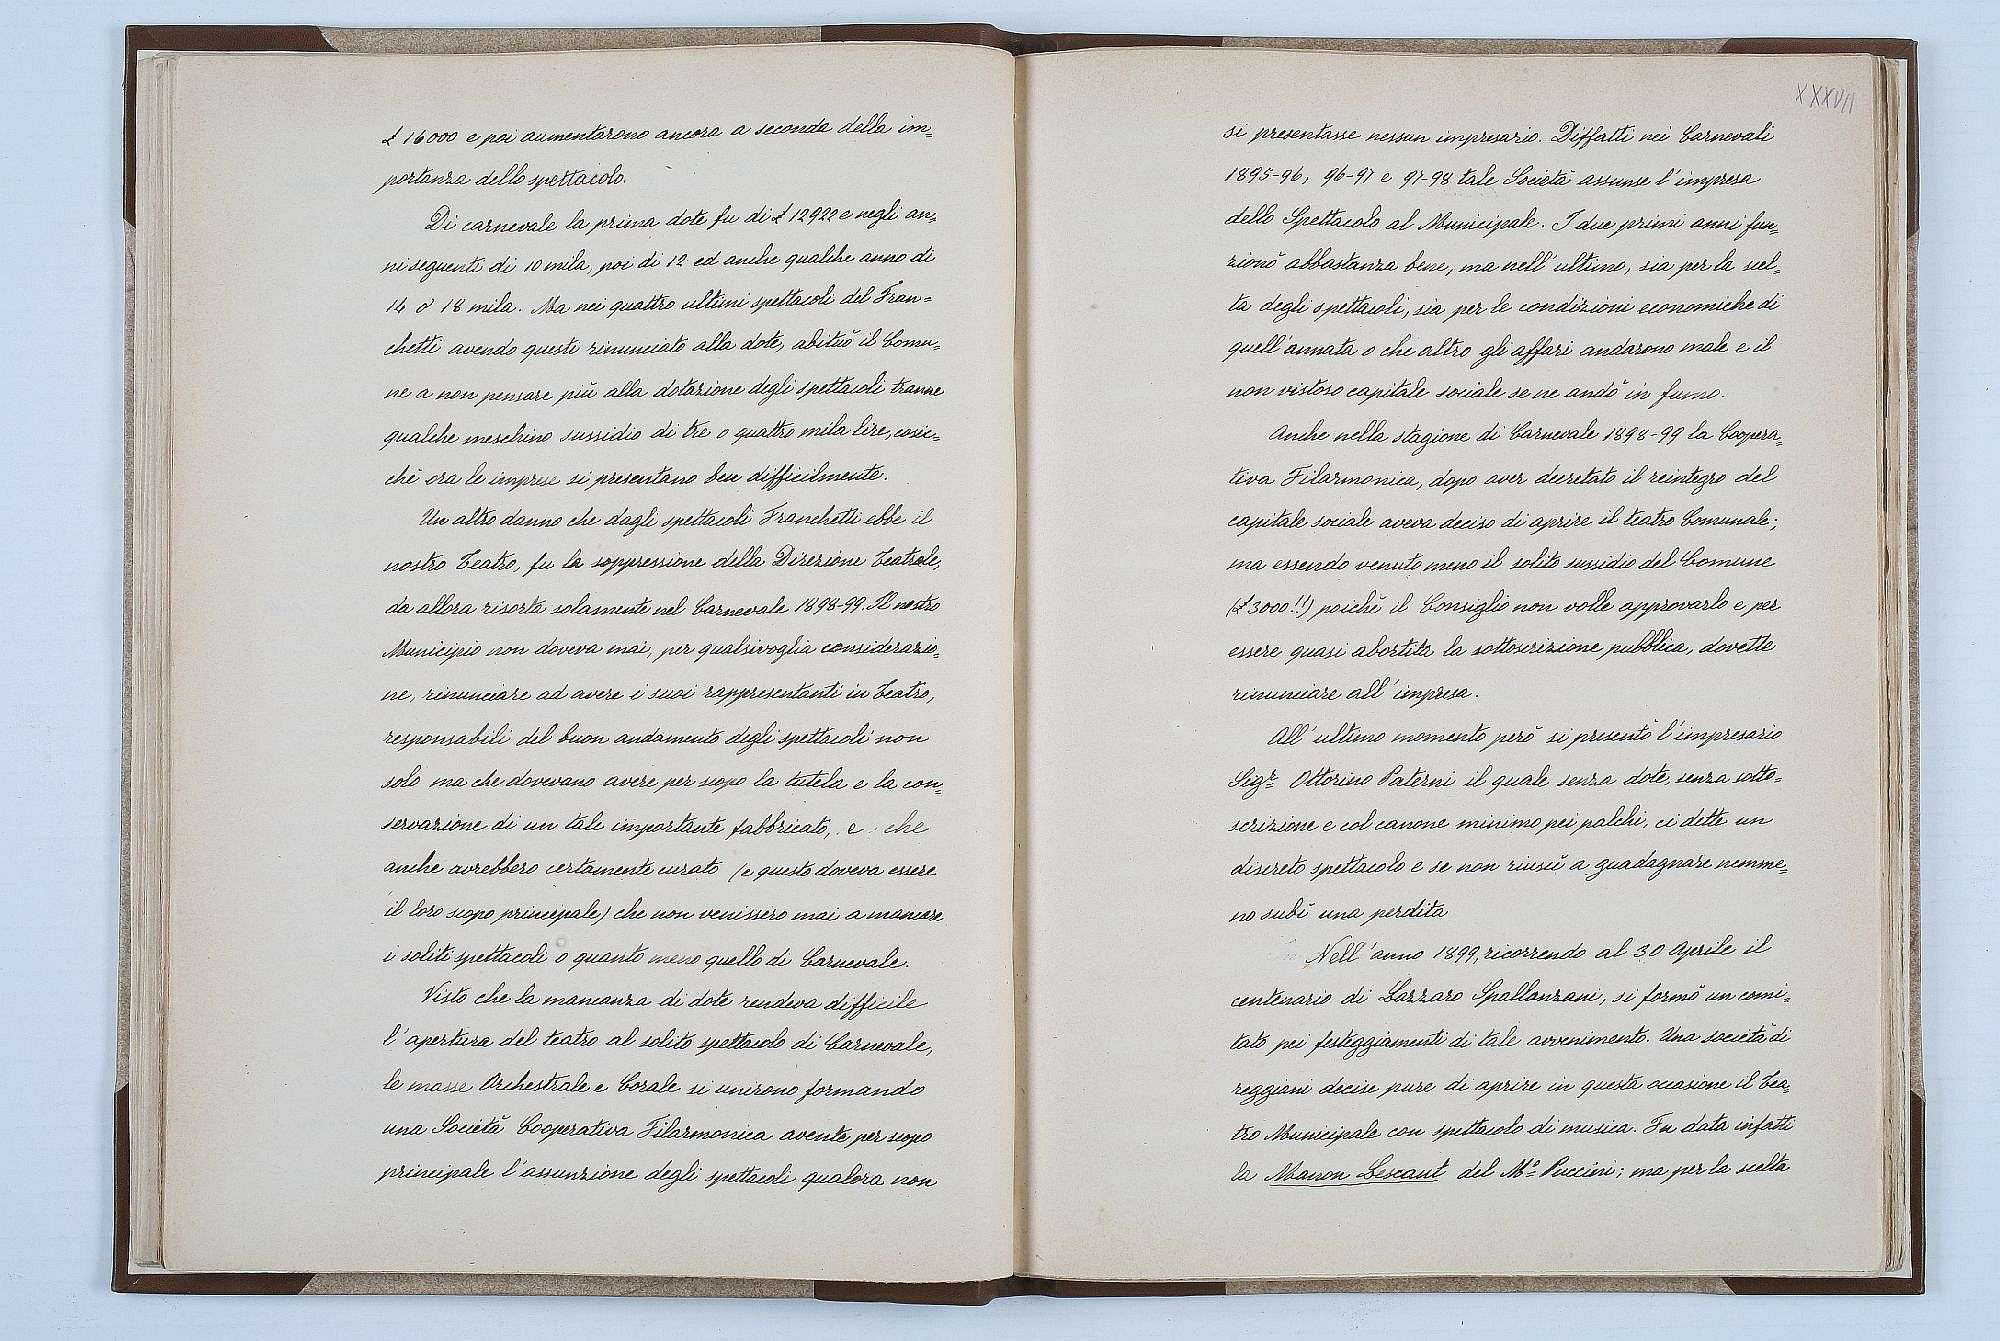 £ 16000 e poi aumentarono ancora a seconda della im=
portanza dello spettacolo.
Di carnevale la prima dote fu di £ 12922 e negli an=
ni seguenti di 10 mila, poi di 12 ed anche qualche anno di
14 o 18 mila. Ma nei quattro ultimi spettacoli del Fran=
chetti avendo questi rinunciato alla dote, abituò il Comu=
ne a non pensare più alla dotazione degli spettacoli tranne
qualche meschino sussidio di tre o quattro mila lire, cosic=
chè ora le imprese si presentano ben difficilmente.
Un altro danno che dagli spettacoli Franchetti ebbe il
nostro Teatro, fu la soppressione della Direzione Teatrale,
da allora risorta solamente nel Carnevale 1898-99. Il nostro
Municipio non doveva mai, per qualsivoglia considerazio=
ne, rinunciare ad avere i suoi rappresentanti in Teatro,
responsabili del buon andamento degli spettacoli non
solo ma che dovevano avere per scopo la tutela e la con=
servazione di un tale importante fabbricato, e che
anche avrebbero certamente curato (e questo doveva essere
il loro scopo principale) che non venissero mai a mancare
i soliti spettacoli o quanto meno quello di Carnevale.
Visto che la mancanza di dote rendeva difficile
l'apertura del teatro al solito spettacolo di Carnevale,
le masse Orchestrale e Corale si unirono formando
una Società Cooperativa Filarmonica avente per scopo
principale l'assunzione degli spettacoli qualora non
XXXVII
si presentasse nessun impresario. Diffatti nei Carnevali
1895-96, 96-97 e 97-98 tale Società assunse l'impresa
dello Spettacolo al Municipale. I due primi anni fun=
zionò abbastanza bene, ma nell'ultimo, sia per la scel=
ta degli spettacoli, sia per le condizioni economiche di
quell'annata o che altro gli affari andarono male e il
non vistoso capitale sociale se ne andò in fumo.
Anche nella stagione di Carnevale 1898-99 la Coopera=
tiva Filarmonica, dopo aver decretato il reintegro del
capitale sociale aveva deciso di aprire il teatro Comunale;
ma essendo venuto meno il solito sussidio del Comune
(£ 3000!!) poichè il Consiglio non volle approvarlo e per
essere quasi abortita la sottoscrizione pubblica, dovette
rinunciare all'impresa.
All'ultimo momento però si presentò l'impresario
Sigr Ottorino Paterni il quale senza dote, senza sotto=
scrizione e col canone minimo pei palchi, ci dette un
discreto spettacolo e se non riuscì a guadagnare nemme=
no subì una perdita
Nell'anno 1899, ricorrendo al 30 Aprile il
centenario di Lazzaro Spallanzani, si formò un comi=
tato pei festeggiamenti di tale avvenimento. Una società di
reggiani decise pure di aprire in questa occasione il Tea
tro Municipale con spettacolo di musica. Fu data infatti
la Manon Lescaut del Mo Puccini; ma per la scelta